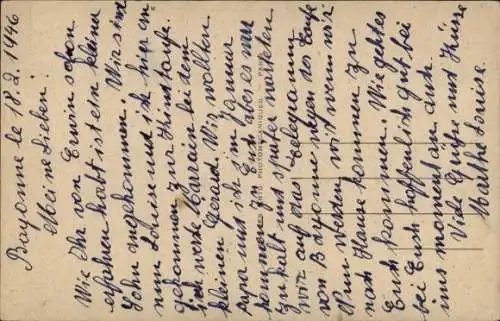 Bayonne le 18.2.1946
Meine Lieben!
Wie Ihr von Erwin schon
erfahren habt ist ein kleiner
Sohn angekommen. Wir sind
nun Louise und ich hier in
gekommen zur Kindstaufe.
Ich werde Marraine bei dem
kleinen Gerard. Wir wollten
Papa und ich im Januar
kommen Euch aber es war
zu kalt und später warteten
wir auf das Telegramm
von Bayonne wegen der Taufe
Nun werden wir wenn wir
nach Hause kommen zu
Euch kommen. Wie geht es
bei Euch hoffentlich gut bei
uns momentan auch.
Viele Grüße und Küsse
Marthe Louise.
PHOTOMECANIQUES